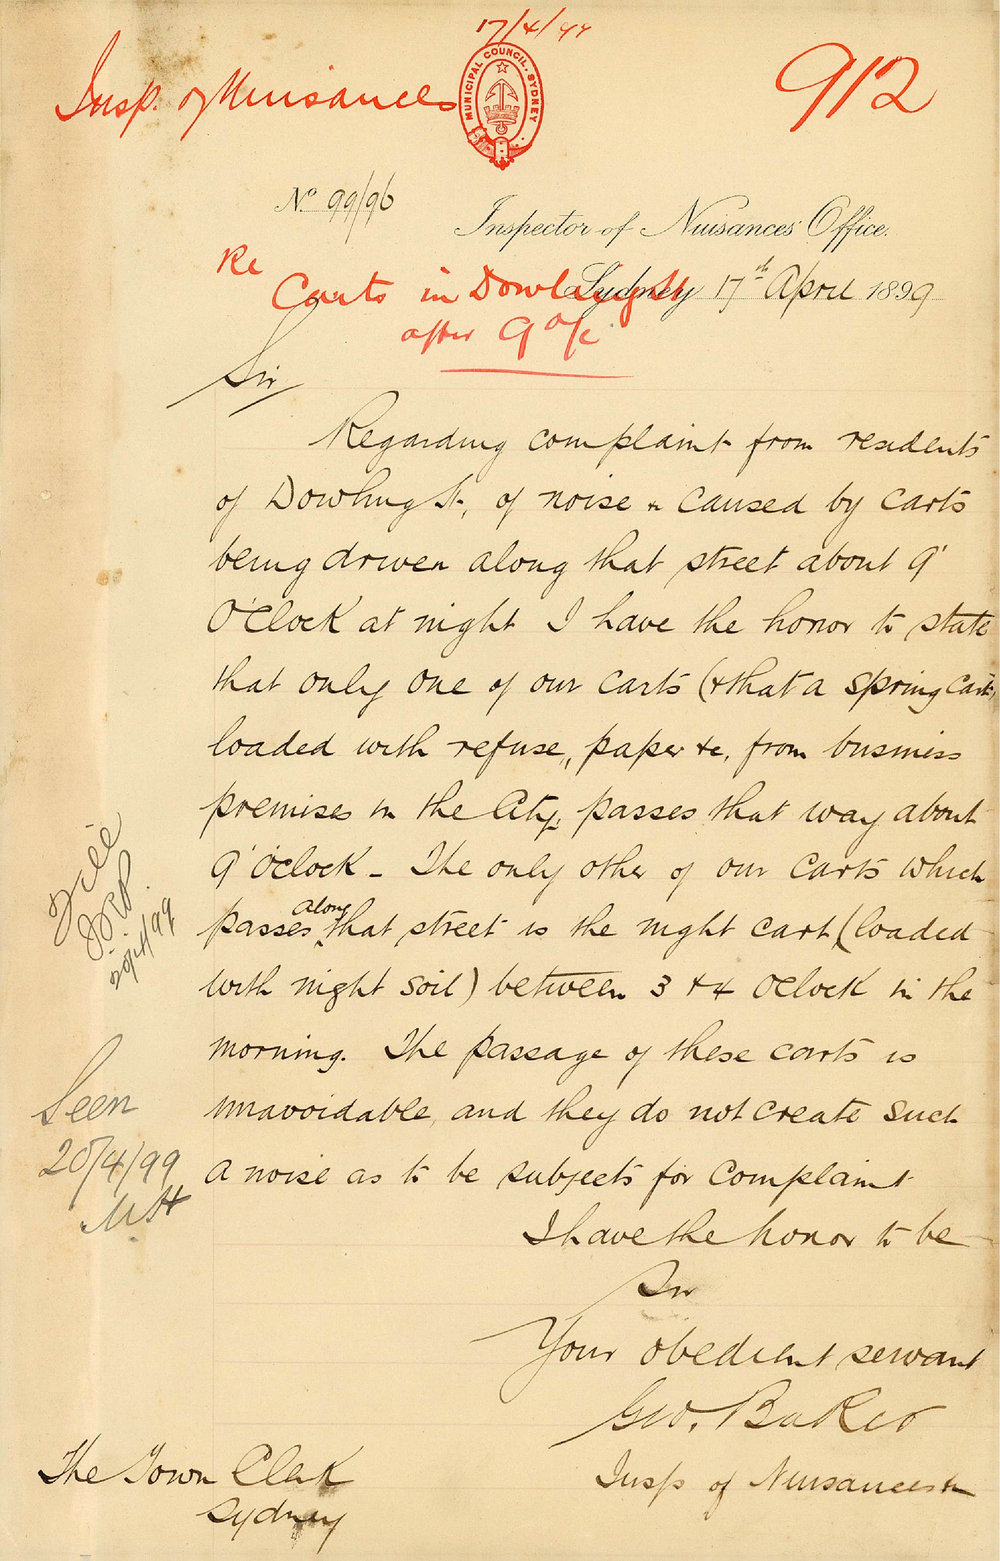 17/4/99
Insp. of Nuisances
MUNICIPAL COUNCIL, SYDNEY
912
No 99/96
Inspector of Nuisances Office.
Sydney 17th April 1899
Re
Carts in Dowling St
after 9 o/c
Sir
Regarding complaint from residents
of Dowling St., of noise &c caused by carts
being driven along that street about 9
O'Clock at night I have the honor to state
that only one of our carts (& that a spring cart,
loaded with refuse, paper &c, from business
premises in the City, passes that way about
9 O'Clock - The only other of our carts which
passes along that street is the night cart (loaded
with night soil) between 3 & 4 OClock in the
morning. The passage of these carts is
unavoidable, and they do not create such
a noise as to be subjects for complaint
I have the honor to be
Sir
Your obedient servant
Geo. Baker
Insp of Nuisances &c
The Town Clerk
Sydney
File
20/4/99
Seen
20/4/99